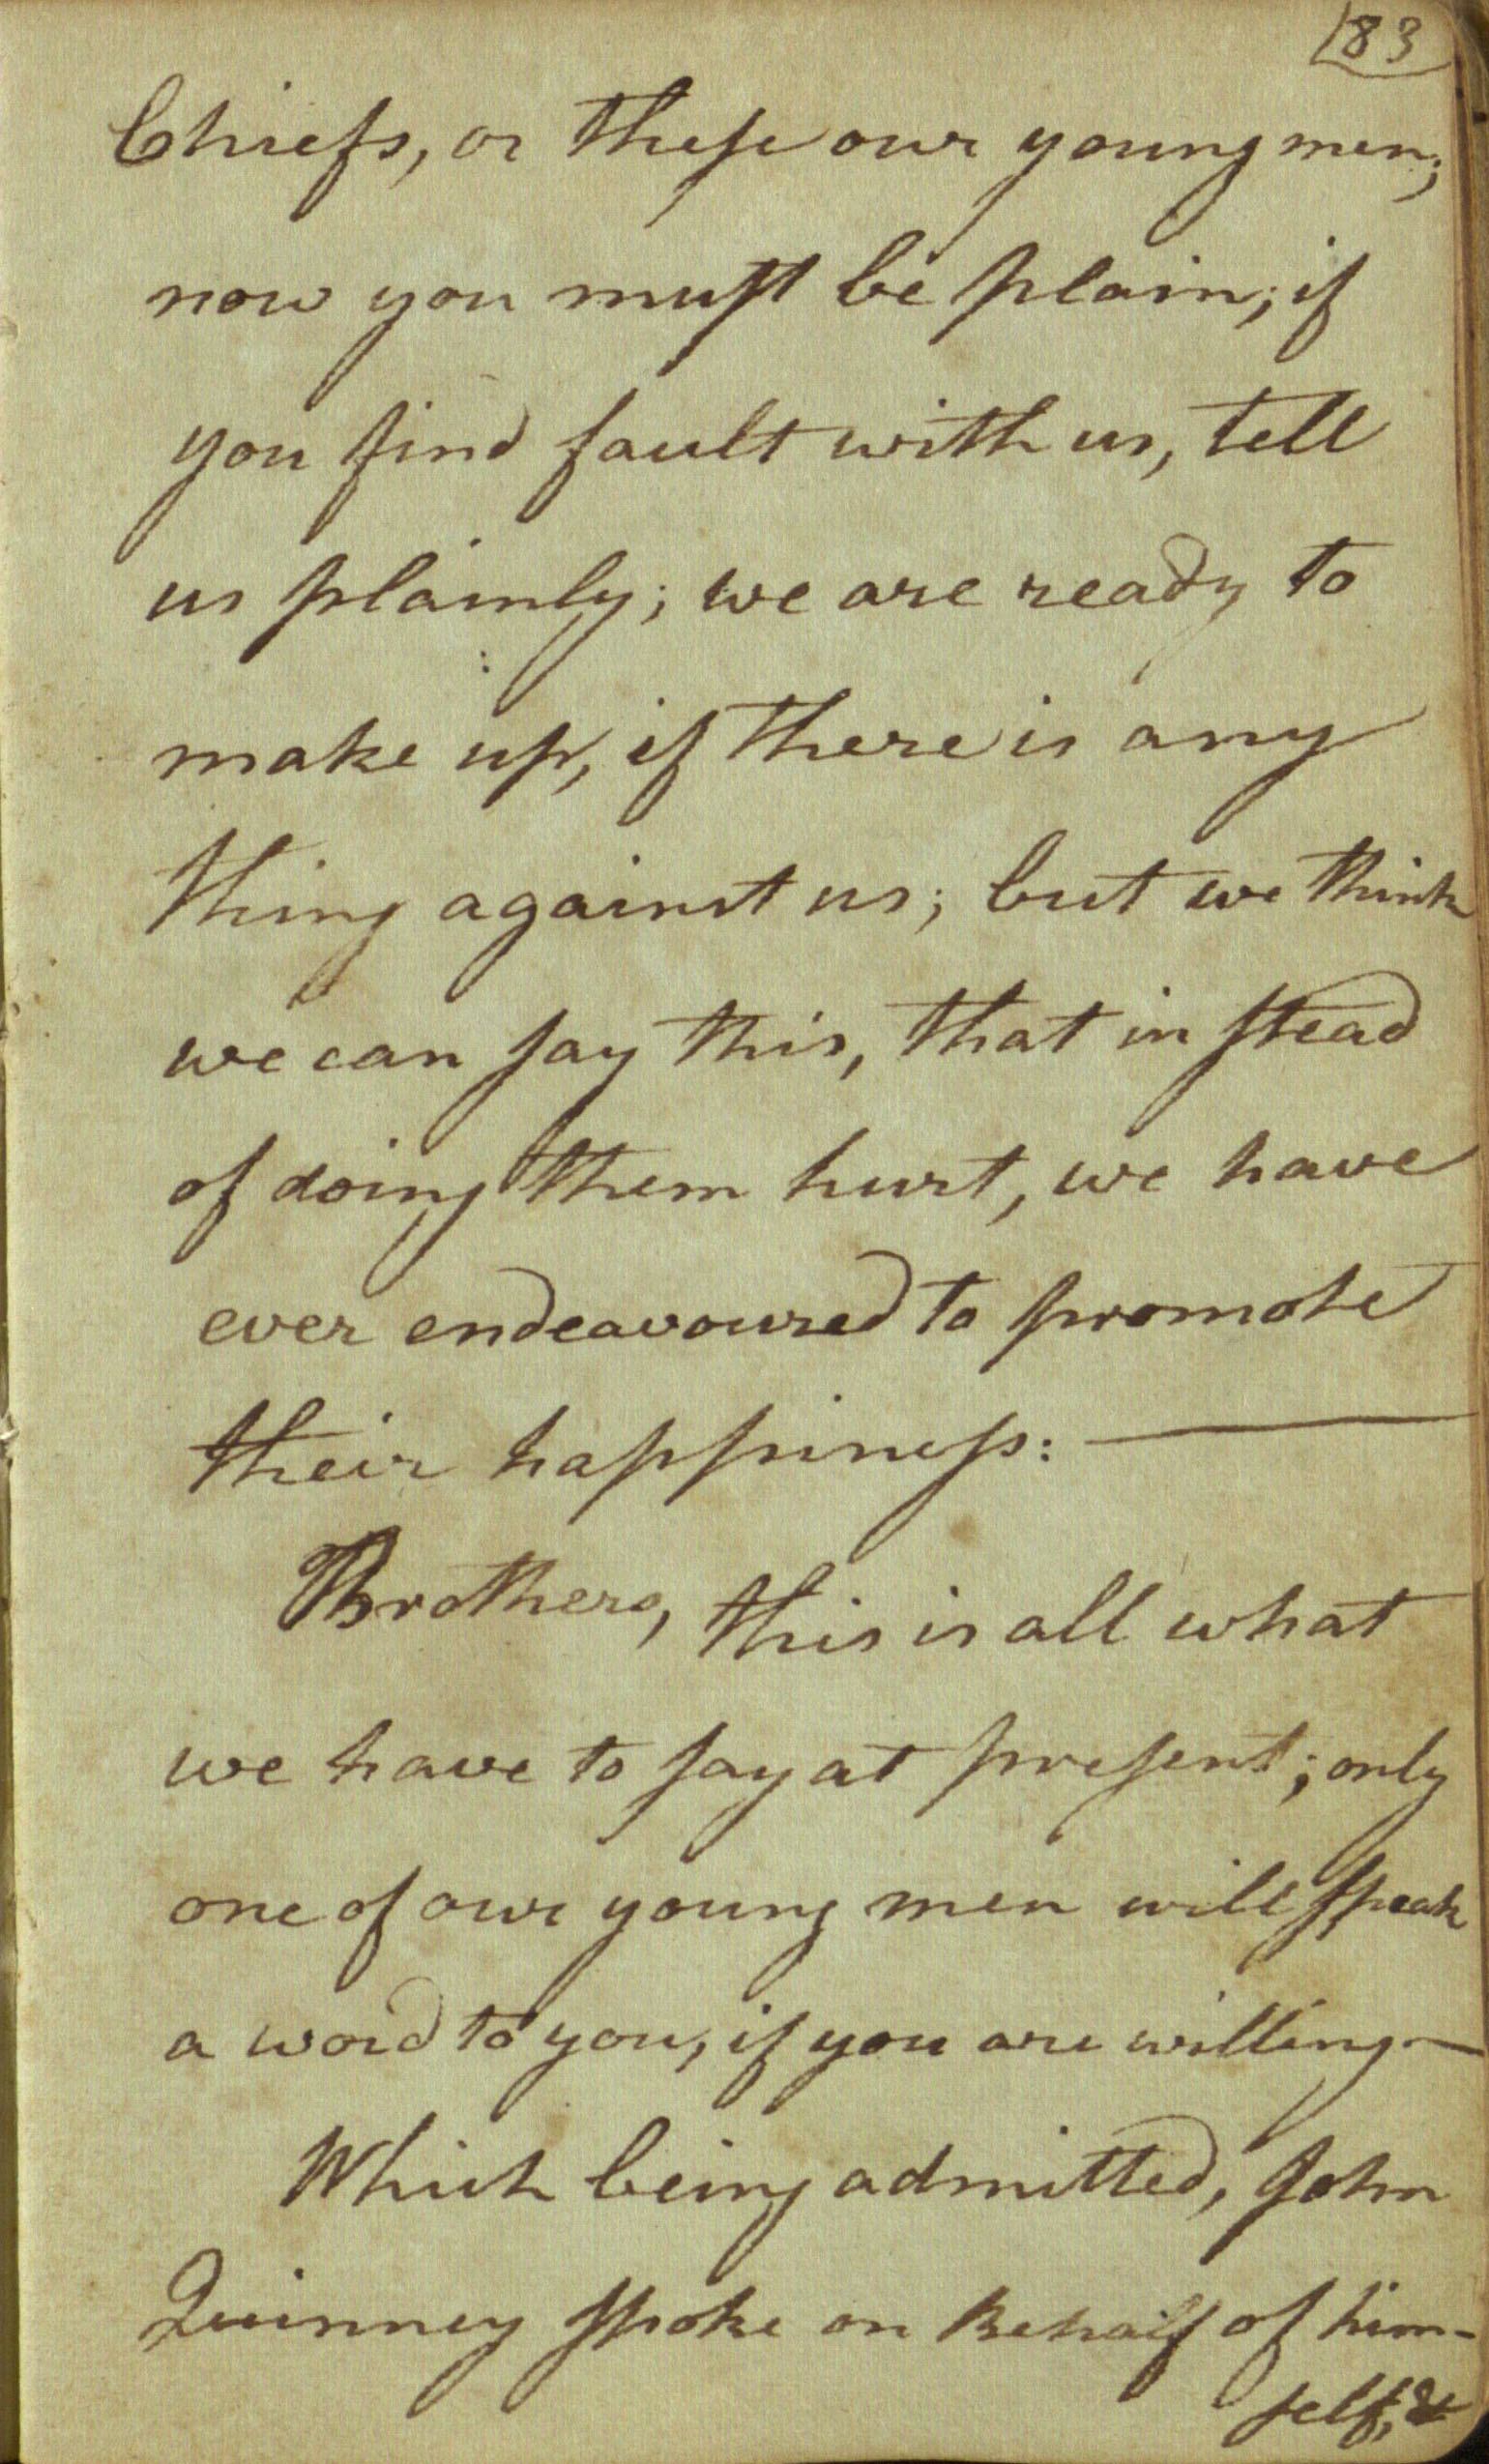 83
Chiefs, or these our young men;
now you must be plain; if
you find fault with us, tell
us plainly; we are ready to
make up, if there is any
thing against us; but we think
we can say this, that in stead
of doing them hurt, we have
ever endeavoured to promote
their happiness: —
Brothers, this is all what
we have to say at present; only
one of our young men will speak
a word to you, if you are willing—
Which being admitted, John
Quinney spoke on Behalf of him-
self, &